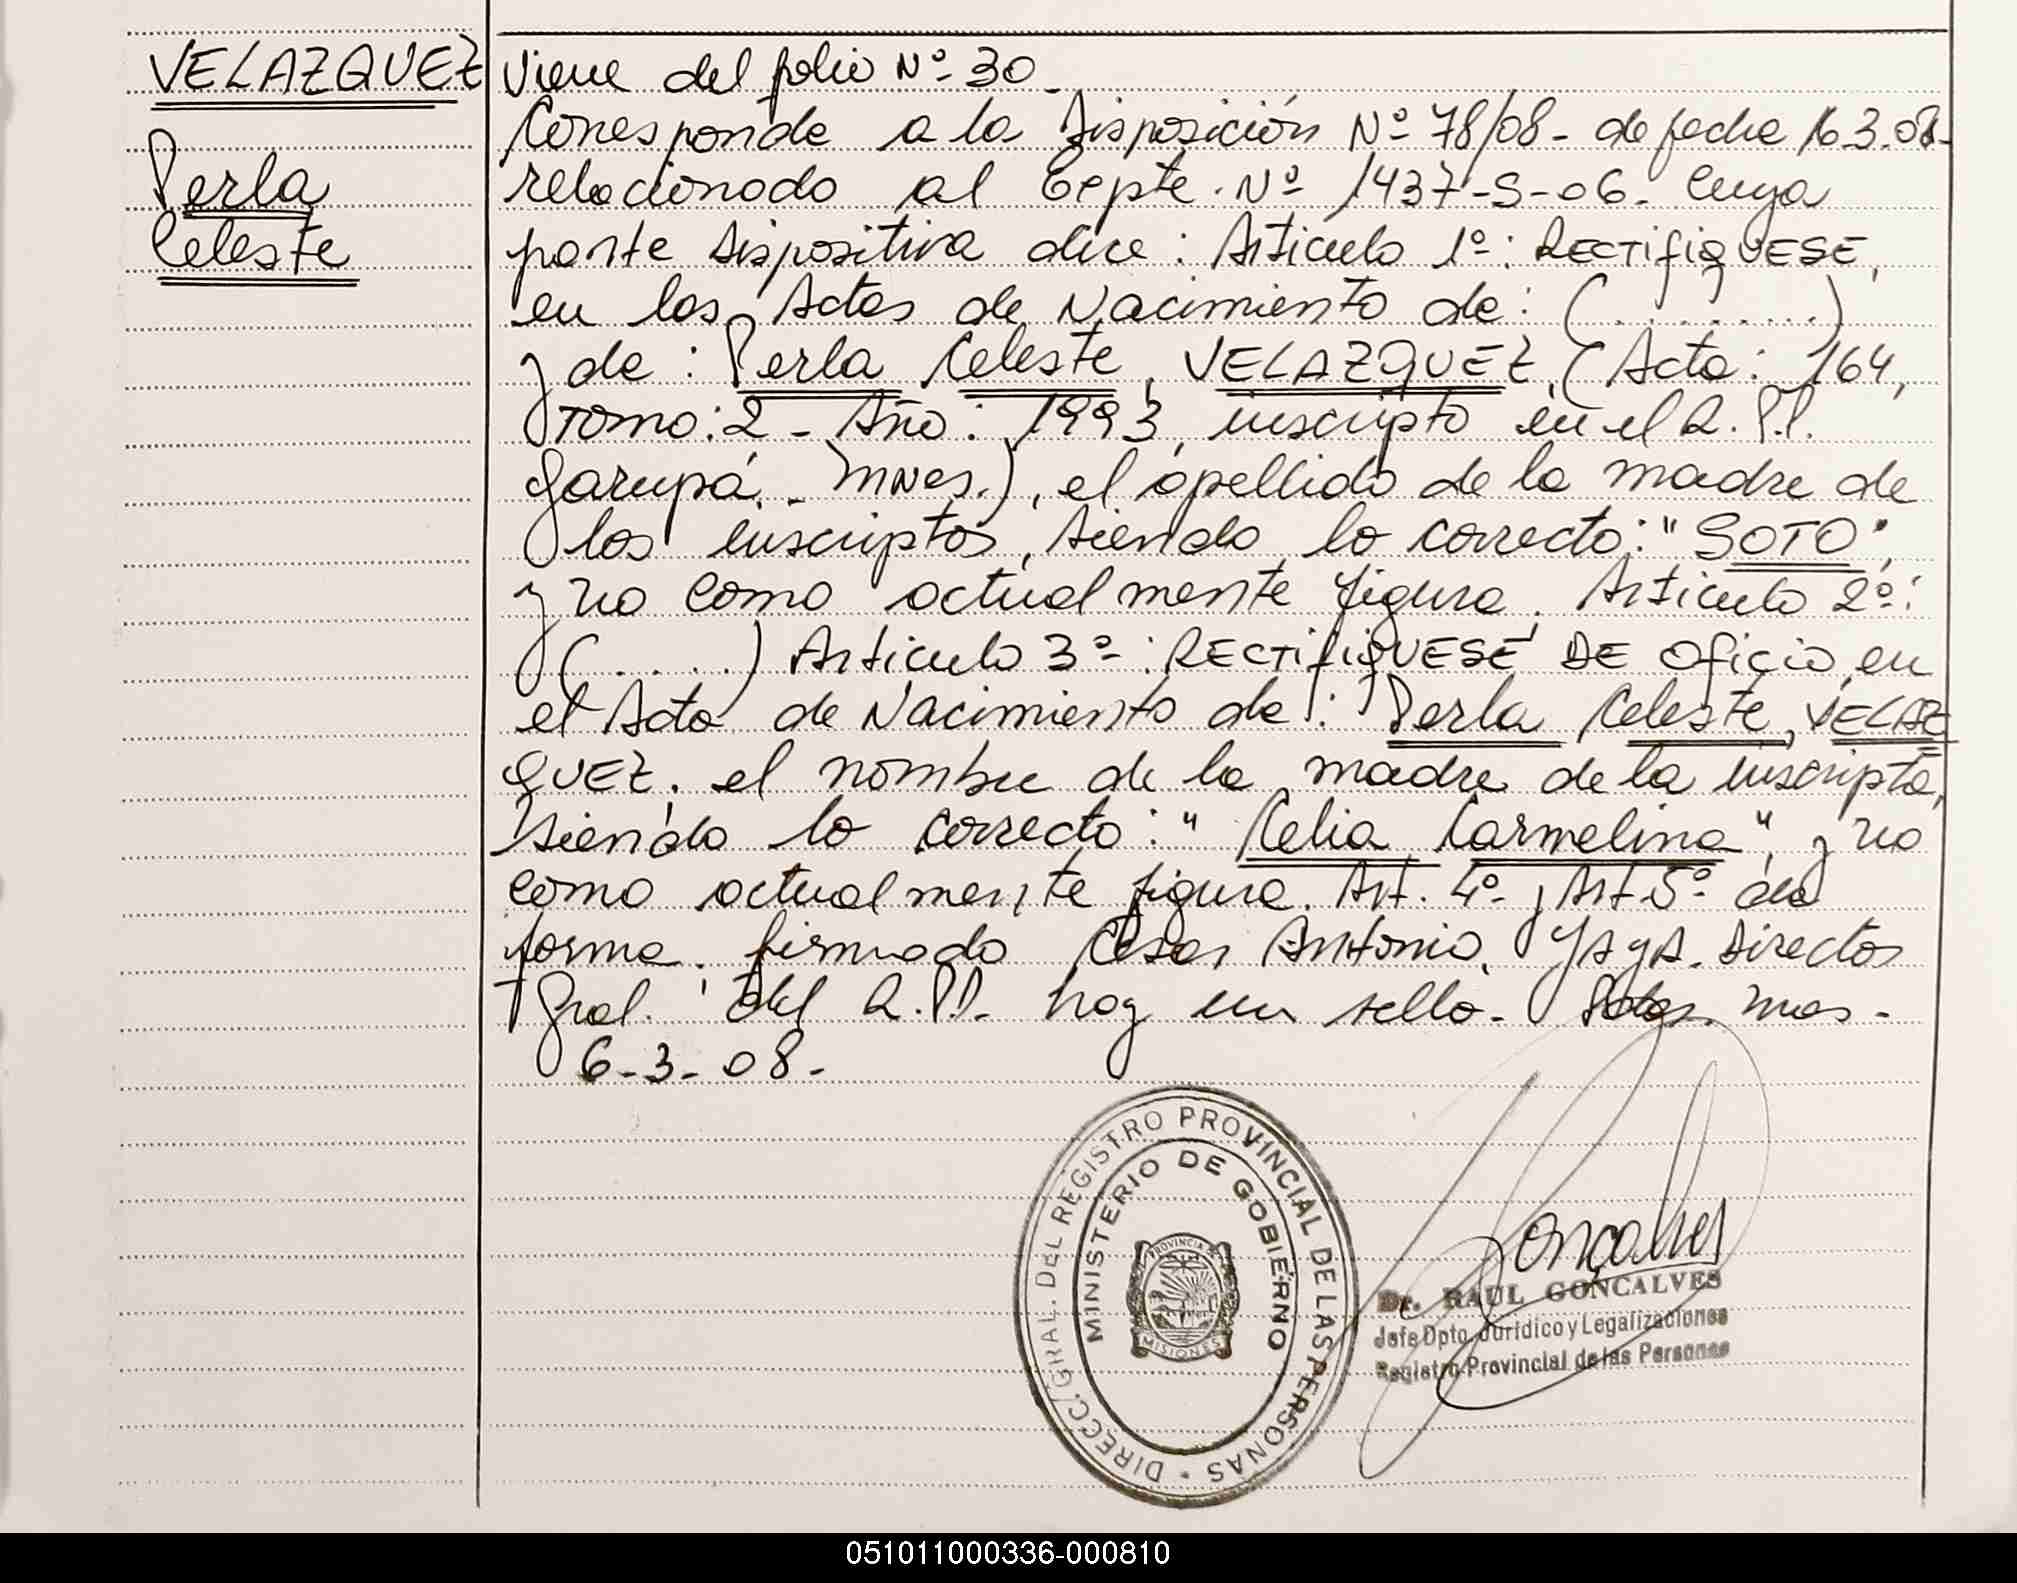 VELAZQUEZ
Perla
Celeste
Viene del folio Nº 30.
Corresponde a la Disposición Nº 78/08- de fecha 6.3.08-
relacionado al Expte. Nº 1437-S-06. Cuya
parte dispositiva dice: Articulo 1º: RECTIFIQUESE,
en las Actas de Nacimiento de: (.........)
y de: Perla Celeste, VELAZQUEZ, (Acta: 164,
Tomo: 2 - Año: 1993, inscripta en el R.P.P.
Garupá - Mnes.), el apellido de la madre de
los inscriptos, siendo lo correcto: "SOTO",
y no como actualmente figura. Articulo 2º:
(.....) Articulo 3º: RECTIFIQUESE DE Oficio, en
el Acta de Nacimiento de: Perla Celeste, VELAZ
QUEZ, el nombre de la madre de la inscripta,
siendo lo correcto: "Celia Carmelina", y no
como actualmente figura. Art. 4º y Art. 5º de
forma. firmado Cesar Antonio, YAYA. Director
Gral. del R.P.P. hay un sello. Pdas. Mnes.
6-3-08.
DIRECC. GRAL. DEL REGISTRO PROVINCIAL DE LAS PERSONAS
MINISTERIO DE GOBIERNO
PROVINCIA DE
MISIONES
Gonçalves
Dr. RAUL GONCALVES
Jefe Dpto. Jurídico y Legalizaciones
Registro Provincial de las Personas
051011000336-000810